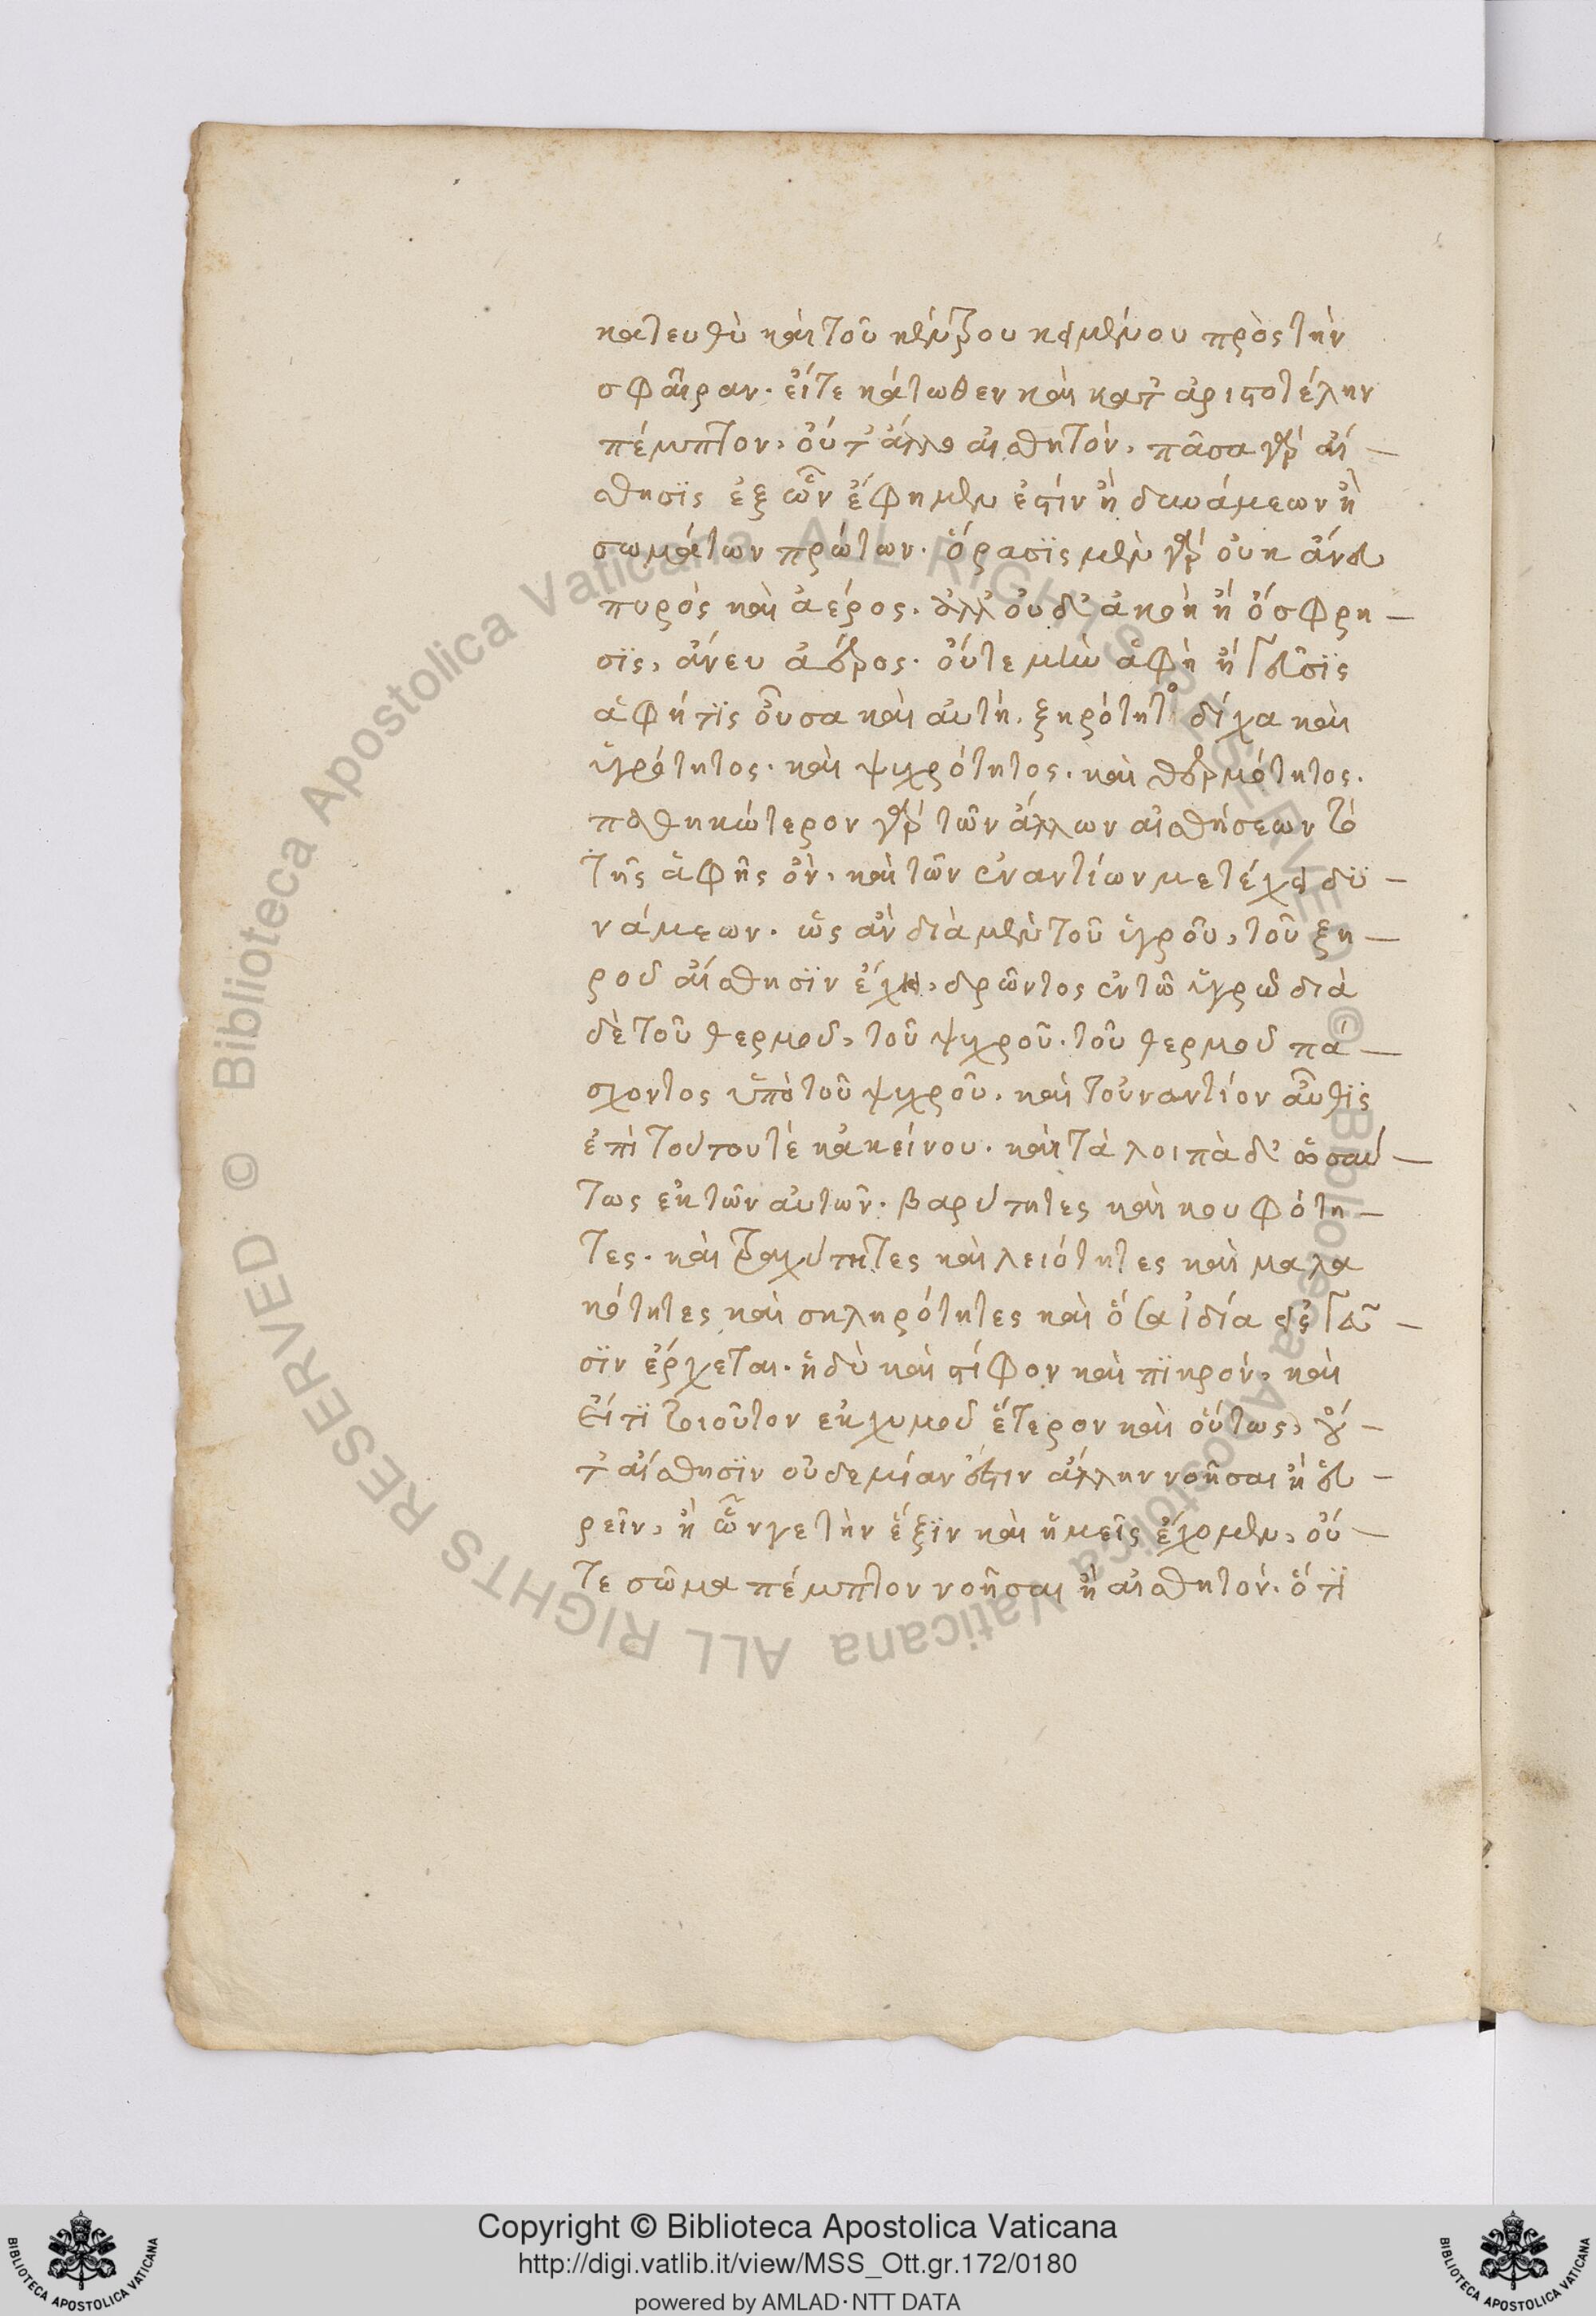 κατευθὺ καὶ τοῦ κέντρου κειμένου πρὸς τὴν
σφαῖραν· εἴτε κάτωθεν καὶ κατ' ἀριστοτέλην
πέμπτον, οὔτ' ἄλλο αἰσθητόν, πᾶσα γὰρ αἴ–
σθησϊς ἐξ ὧν ἔφημεν ἐστὶν ἢ δυνάμεων ἢ
σωμάτων πρώτων. ὅρασϊς μὲν γὰρ οὐκ ἄνευ
πυρὸς καὶ ἀέρος. ἀλλ' οὐδ' ἀκοὴ ἢ ὄσφρη–
σϊς, ἄνευ ἀέρος. οὔτε μὴν ἁφὴ ἢ γεῦσϊς
ἁφή τϊς οὖσα καὶ αὐτή. ξηρότητος δίχα καὶ
ὑγρότητος. καὶ ψυχρότητος. καὶ θερμότητος.
παθηκώτερον γὰρ τῶν ἄλλων αἰσθήσεων τὸ
τῆς ἁφῆς ὂν, καὶ τῶν ἐναντίων μετέχει δϋ–
νάμεων. ὡς ἂν διὰ μὲν τοῦ ὑγροῦ, τοῦ ξη–
ροῦ αἴσθησϊν ἔχη, δρῶντος ἐν τῶ ὑγρῶ διὰ
δὲ τοῦ θερμοῦ, τοῦ ψυχροῦ. τοῦ θερμοῦ πά–
σχοντος ὑπὸ τοῦ ψυχροῦ. καὶ τοὐναντίον αὖθϊς
ἐπὶ τούτου τὲ κἀκείνου. καὶ τὰ λοιπὰ δ' ὡσαύ–
τως ἐκ τῶν αὐτῶν. βαρύτητες καὶ κουφότη–
τες. καὶ τραχύτητες καὶ λειότητες καὶ μαλα
κότητες καὶ σκληρότητες καὶ ὅσα ἰδία εἰς γεῦ–
σϊν ἔρχεται. ἡδὺ καὶ στίφον καὶ πϊκρόν, καὶ
εἴ τϊ τοιοῦτον ἐκ χυμοῦ ἕτερον καὶ οὕτως, οὔ–
τ' αἴσθησϊν οὐδεμίαν ἔστιν ἄλλην νοῆσαι ἢ εὑ–
ρεῖν, ἢ ὧν γε τὴν ἕξϊν καὶ ἡμεῖς ἔχομεν, οὔ–
τε σῶμα πέμπτον νοῆσαι ἢ αἰσθητόν. ὅ τϊ
Copyright © Biblioteca Apostolica Vaticana
http://digi.vatlib.it/view/MSS_Ott.gr.172/0180
powered by AMLAD·NTT DATA
BIBLIOTECA APOSTOLICA VATICANA
BIBLIOTECA APOSTOLICA VATICANA
© Biblioteca Apostolica Vaticana ALL RIGHTS RESERVED
© Biblioteca Apostolica Vaticana ALL RIGHTS RESERVED